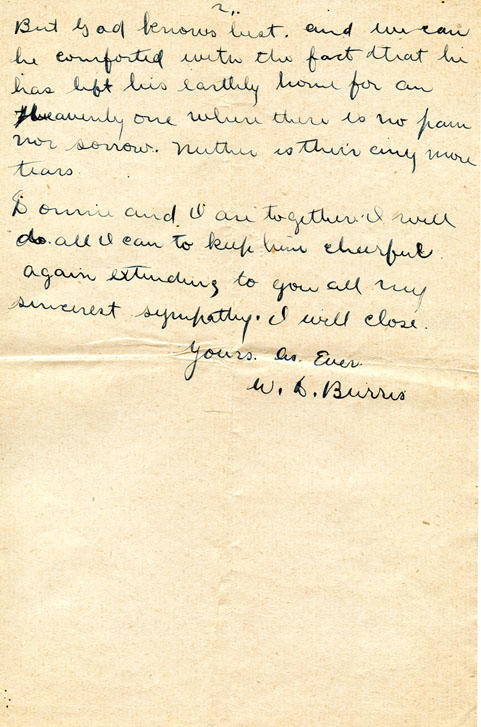 2
But God knows best. and we can
be comforted with the fact that he
has left his earthly home for an
Heavenly one where there is no pain
nor sorrow. Neither is their any more
tears
Donnie and I are together. I will
do. all I can to keep him cheerful.
again extending to you all my
sincerest sympathy. I will close.
Yours. As. Ever.
W. D. Burris